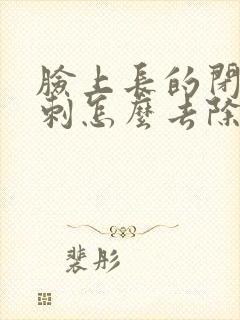 臉上長的閉
刺怎麼去除
裴彤